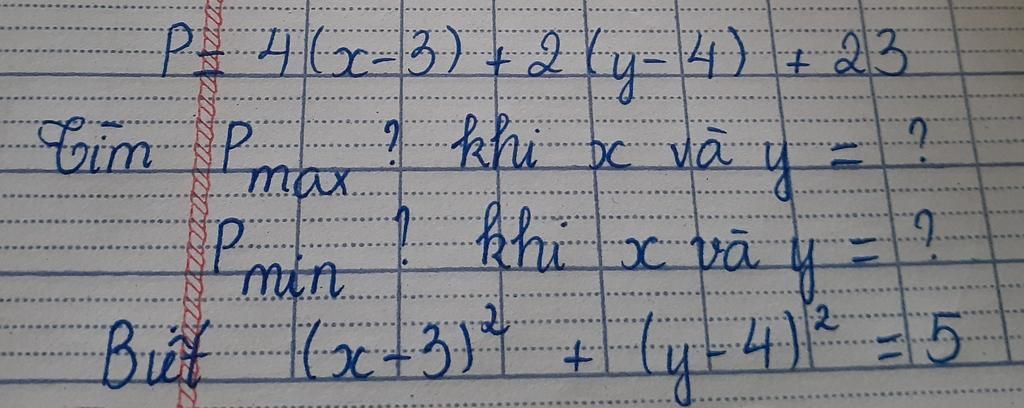 P = 4(x-3) + 2(y-4) + 23
Tìm P max ? khi x và y = ?
P min ? khi x và y = ?
Biết (x-3)² + (y-4)² = 5